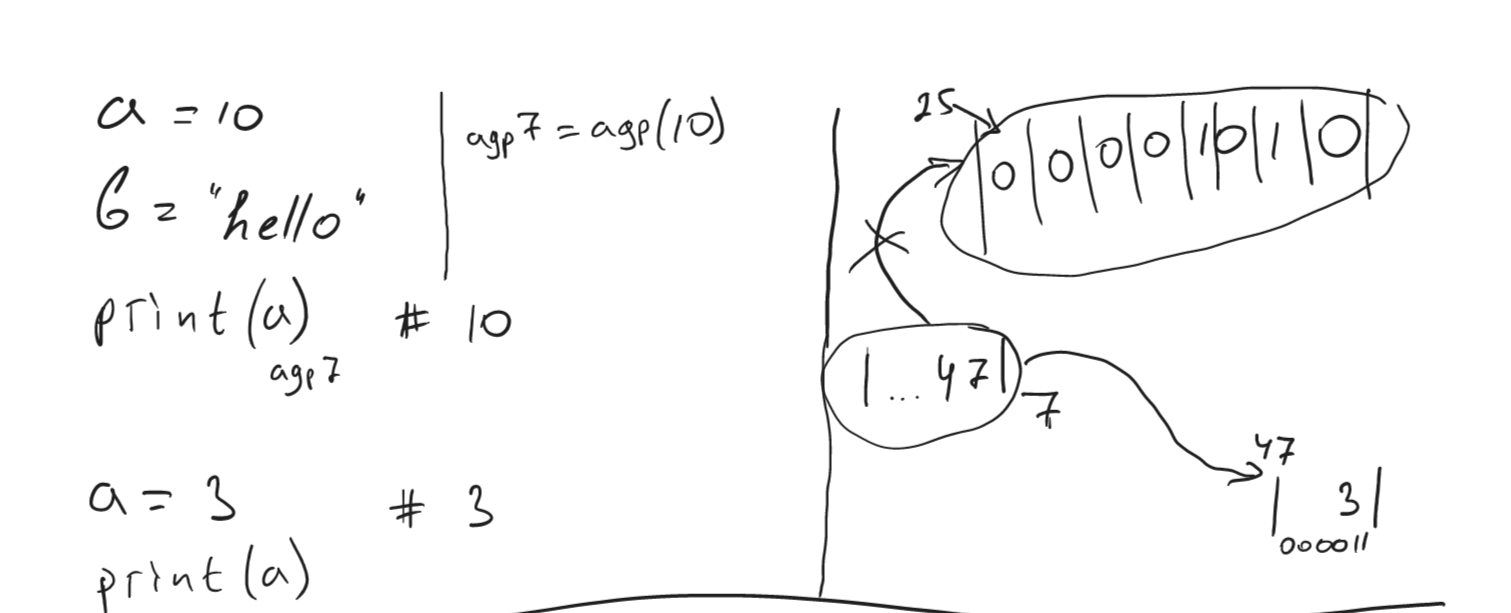 a = 10
б = "hello"
print(a) # 10
адр 7
a = 3 # 3
print(a)
адр 7 = адр(10)
25
|0|0|0|0|1|0|1|0|
|... 47|
7
47
| 3|
000011